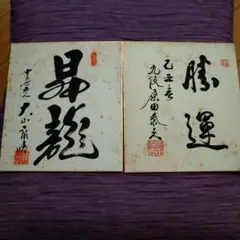 昇龍
十五世名人
大山康晴
勝運
乙丑春
九段 原田泰夫